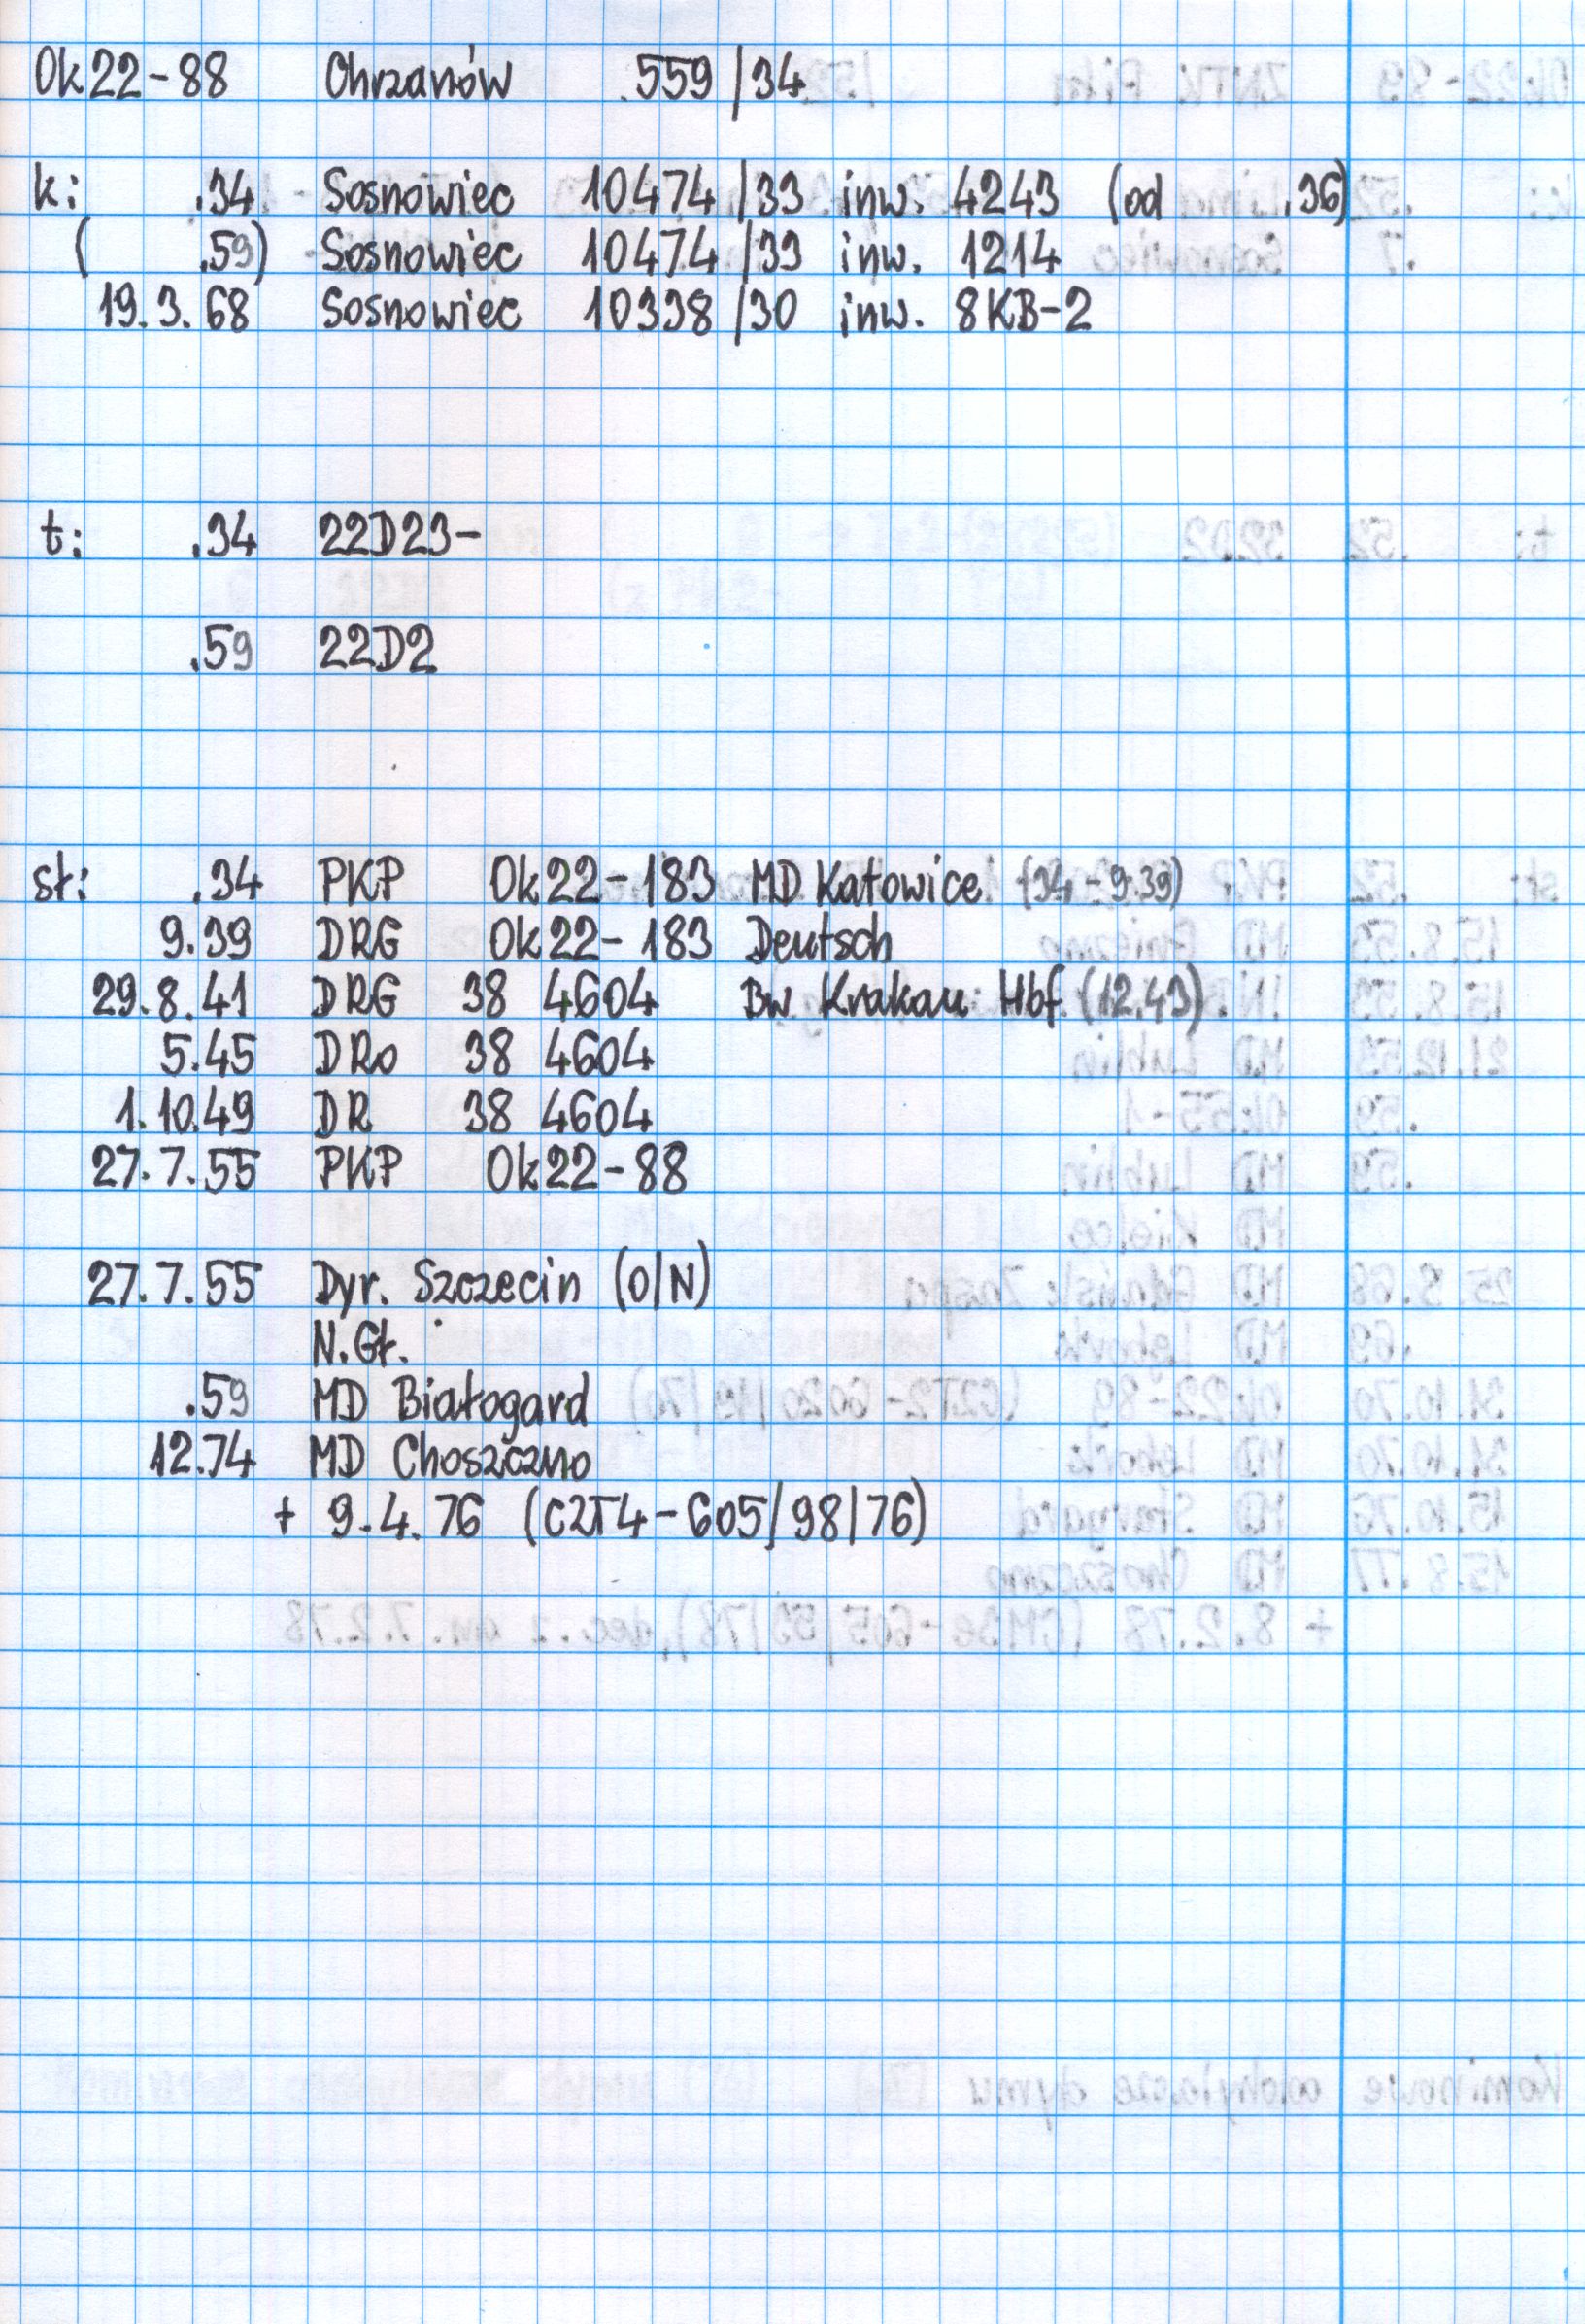 Ok22-88 Chrzanów .559/34
k: .34 Sosnowiec 10474/33 inw. 4243 (od .36)
( .59) Sosnowiec 10474/33 inw. 1214
19.3.68 Sosnowiec 10338/30 inw. 8KB-2
t: .34 22D23-
.59 22D2
sł: .34 PKP Ok22-183 MD Katowice (34-9.39)
9.39 DRG Ok22-183 Deutsch
29.8.41 DRG 38 4604 Bw Krakau Hbf. (12.43)
5.45 DRo 38 4604
1.10.49 DR 38 4604
27.7.55 PKP Ok22-88
27.7.55 Dyr. Szczecin (O/N)
N.Gł.
.59 MD Białogard
12.74 MD Choszczno
+ 9.4.76 (C2T4-605/98/76)